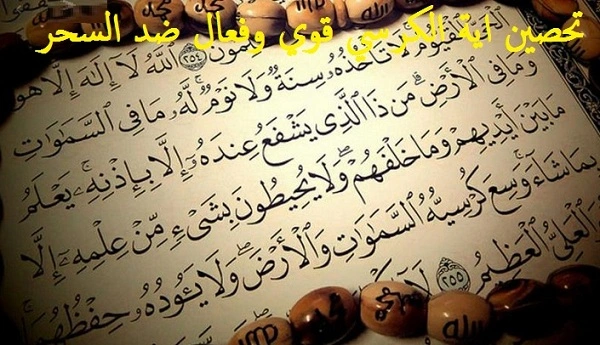 تحصين اية الكرسي قوي وفعال ضد السحر
ٱللَّهُ لَآ إِلَٰهَ إِلَّا هُوَ
ٱلْحَىُّ ٱلْقَيُّومُ لَا تَأْخُذُهُۥ سِنَةٌ وَلَا نَوْمٌ لَّهُۥ مَا فِى ٱلسَّمَٰوَٰتِ
وَمَا فِى ٱلْأَرْضِ مَن ذَا ٱلَّذِى يَشْفَعُ عِندَهُۥٓ إِلَّا بِإِذْنِهِۦ يَعْلَمُ
مَا بَيْنَ أَيْدِيهِمْ وَمَا خَلْفَهُمْ وَلَا يُحِيطُونَ بِشَىْءٍ مِّنْ عِلْمِهِۦٓ إِلَّا
بِمَا شَآءَ وَسِعَ كُرْسِيُّهُ ٱلسَّمَٰوَٰتِ وَٱلْأَرْضَ وَلَا يَـُٔودُهُۥ حِفْظُهُمَا
ٱلْعَلِىُّ ٱلْعَظِيمُ ٢٥٥ لَآ